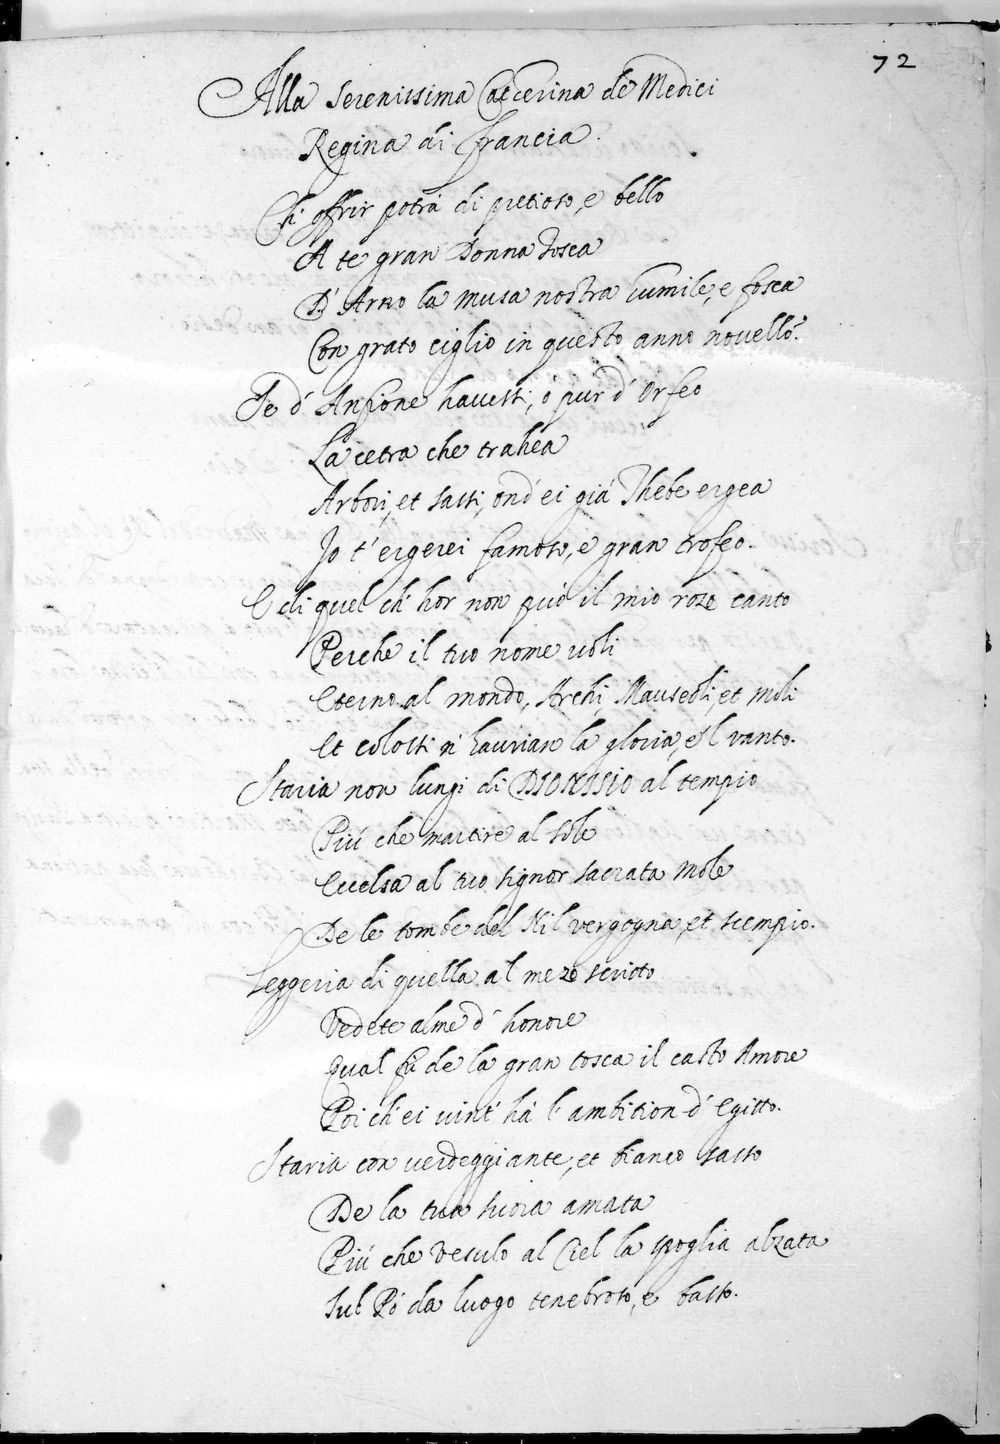 72
Alla Serenissima Catterina de Medici
Regina di Francia.
Chi offrir potrà di pretioso, e bello
A te gran Donna Tosca
D' Arno la musa nostra humile, e fosca
Con grato ciglio in questo anno novello?
Se d' Anfione havessi, ò pur d' Orfeo
La cetra che trahea
Arbori, et sassi, ond' ei già Thebe ergea
Io t' ergerei famoso, e gran trofeo.
E di quel ch' hor non può il mio rozo canto
Perche il tuo nome voli
Eterno al mondo, Archi, Mauseoli, et moli
Et colossi n' haurian la gloria, e'l vanto.
Staria non lungi di DIONISIO al tempio
Più che martire al sole
Eccelsa al tuo signor sacrata mole
De le tombe del Nil vergogna, et scempio.
Leggeria di quella al mezo scritto
Vedete alme d' honore
Qual fù de la gran tosca il casto Amore
Poi ch' ei vint' ha l' ambition d' Egitto.
Staria con verdeggiante, et bianco sasso
De la tua suora amata
Più che Vesulo al Ciel la spoglia alzata
Sul Pò da luogo tenebroso, e basso.